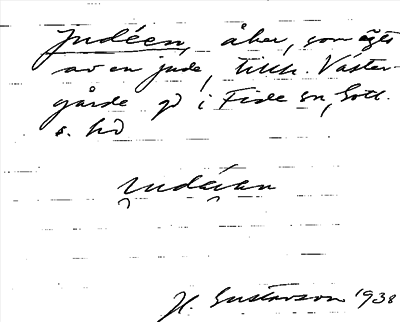 Judéen, åker, som ägts
av en jude, tillh. Väster-
gårde gd i Fide sn, Gotl.
s. hd
Judéen
H. Gustavson 1938